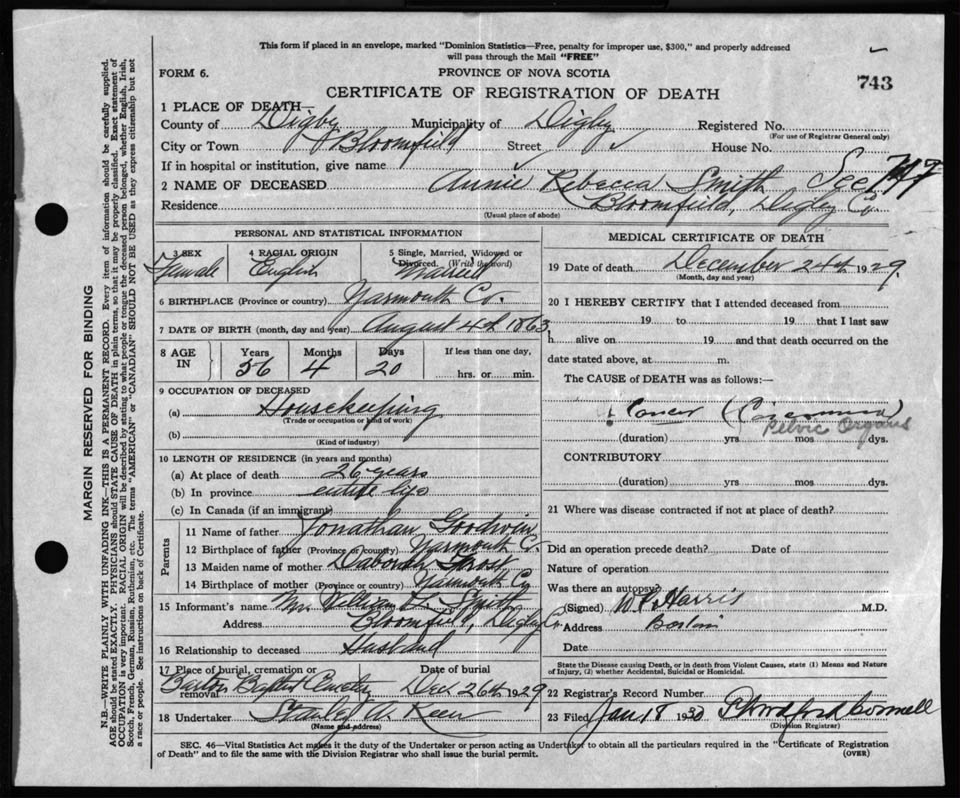 This form if placed in an envelope, marked "Dominion Statistics—Free, penalty for improper use, $300," and properly addressed
will pass through the Mail "FREE"
FORM 6.
PROVINCE OF NOVA SCOTIA
743
CERTIFICATE OF REGISTRATION OF DEATH
1 PLACE OF DEATH—
County of Digby Municipality of Digby Registered No.
(For use of Registrar General only)
City or Town Bloomfield Street House No.
If in hospital or institution, give name
2 NAME OF DECEASED Annie Rebecca Smith See
Residence Bloomfield, Digby Co.
(Usual place of abode)
PERSONAL AND STATISTICAL INFORMATION
3 SEX 4 RACIAL ORIGIN 5 Single, Married, Widowed or Divorced. (Write the word)
Female English Married
6 BIRTHPLACE (Province or country) Yarmouth Co.
7 DATE OF BIRTH (month, day and year) August 4th 1863
8 AGE IN Years Months Days If less than one day,
56 4 20 hrs. or min.
9 OCCUPATION OF DECEASED
(a) Housekeeping
(Trade or occupation or kind of work)
(b)
(Kind of industry)
10 LENGTH OF RESIDENCE (in years and months)
(a) At place of death 26 years
(b) In province entire life
(c) In Canada (if an immigrant)
Parents
11 Name of father Jonathan Goodwin
12 Birthplace of father (Province or country) Yarmouth Co.
13 Maiden name of mother Daborah Frost
14 Birthplace of mother (Province or country) Yarmouth Cy
15 Informant's name Mr. William Smith
Address Bloomfield, Digby Co.
16 Relationship to deceased Husband
17 Place of burial, cremation or removal Date of burial
Barton Baptist Cemetery Dec 26th 1929
18 Undertaker Stanley W. Keen
(Name and address)
MEDICAL CERTIFICATE OF DEATH
19 Date of death December 24th 1929.
(Month, day and year)
20 I HEREBY CERTIFY that I attended deceased from
19 to 19 that I last saw
h alive on 19 and that death occurred on the
date stated above, at m.
The CAUSE of DEATH was as follows:—
Cancer (Carcinoma)
Pelvic Organs
(duration) yrs mos dys.
CONTRIBUTORY
(duration) yrs. mos. dys.
21 Where was disease contracted if not at place of death?
Did an operation precede death? Date of
Nature of operation
Was there an autopsy?
(Signed) Harris M.D.
Address Barton
Date
State the Disease causing Death, or in death from Violent Causes, state (1) Means and Nature
of Injury, (2) whether Accidental, Suicidal or Homicidal.
22 Registrar's Record Number
23 Filed Jan 18 1930
(Division Registrar)
SEC. 46—Vital Statistics Act makes it the duty of the Undertaker or person acting as Undertaker to obtain all the particulars required in the "Certificate of Registration
of Death" and to file the same with the Division Registrar who shall issue the burial permit. (OVER)
MARGIN RESERVED FOR BINDING
N.B—WRITE PLAINLY WITH UNFADING INK—THIS IS A PERMANENT RECORD. Every item of information should be carefully supplied.
AGE should be stated EXACTLY. PHYSICIANS should STATE CAUSE OF DEATH in plain terms, so that it may be properly classified. Exact statement of
OCCUPATION is very important. RACIAL ORIGIN will be described by stating to what people or tongue the deceased person belonged, whether English, Irish,
Scotch, French, German, Russian, Ruthenian, etc. The terms "AMERICAN" or "CANADIAN" SHOULD NOT BE USED as they express citizenship but not
a race or people. See instructions on back of Certificate.